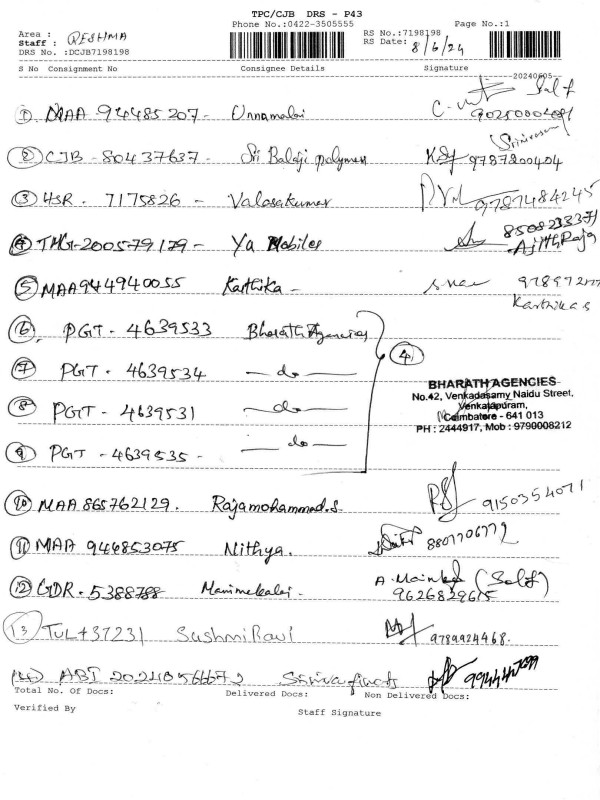 TPC/CJB DRS - P43
Phone No.:0422-3505555 Page No.:1
Area :
Staff : RESHMA
DRS No. :DCJB7198198
RS No.:7198198
RS Date: 8/6/24
S No Consignment No Consignee Details Signature
20240605
① MAA 94485207 - Unnamalai Self
② CJB - 80437637 - Sri Balaji polymer 9787200404
Srinivasan
③ HSR. 7175826 - Valasakumar 9787484245
④ TMG-200579179 - Ya Mobiles 8508233371
Ajith Raja
⑤ MAA944940055 Karthika -
Karthika s
⑥ PGT - 4639533 Bharath Agencies
⑦ PGT - 4639534 — do —
④
⑧ PGT - 4639531 — do —
⑨ PGT - 4639535 - — do —
BHARATH AGENCIES
No.42, Venkadasamy Naidu Street,
Venkatapuram,
Coimbatore - 641 013
PH : 2444917, Mob : 9790008212
⑩ MAA 865762129. Rajamohammed.s. 9150354071
⑪ MAA 944853075 Nithya.
⑫ GDR. 5388788 Manimekalai - (Self)
9626829615
⑬ TUL 437231 SushmiRavi 9789924468.
(14) ABI
Total No. Of Docs: Delivered Docs: Non Delivered Docs:
Verified By Staff Signature